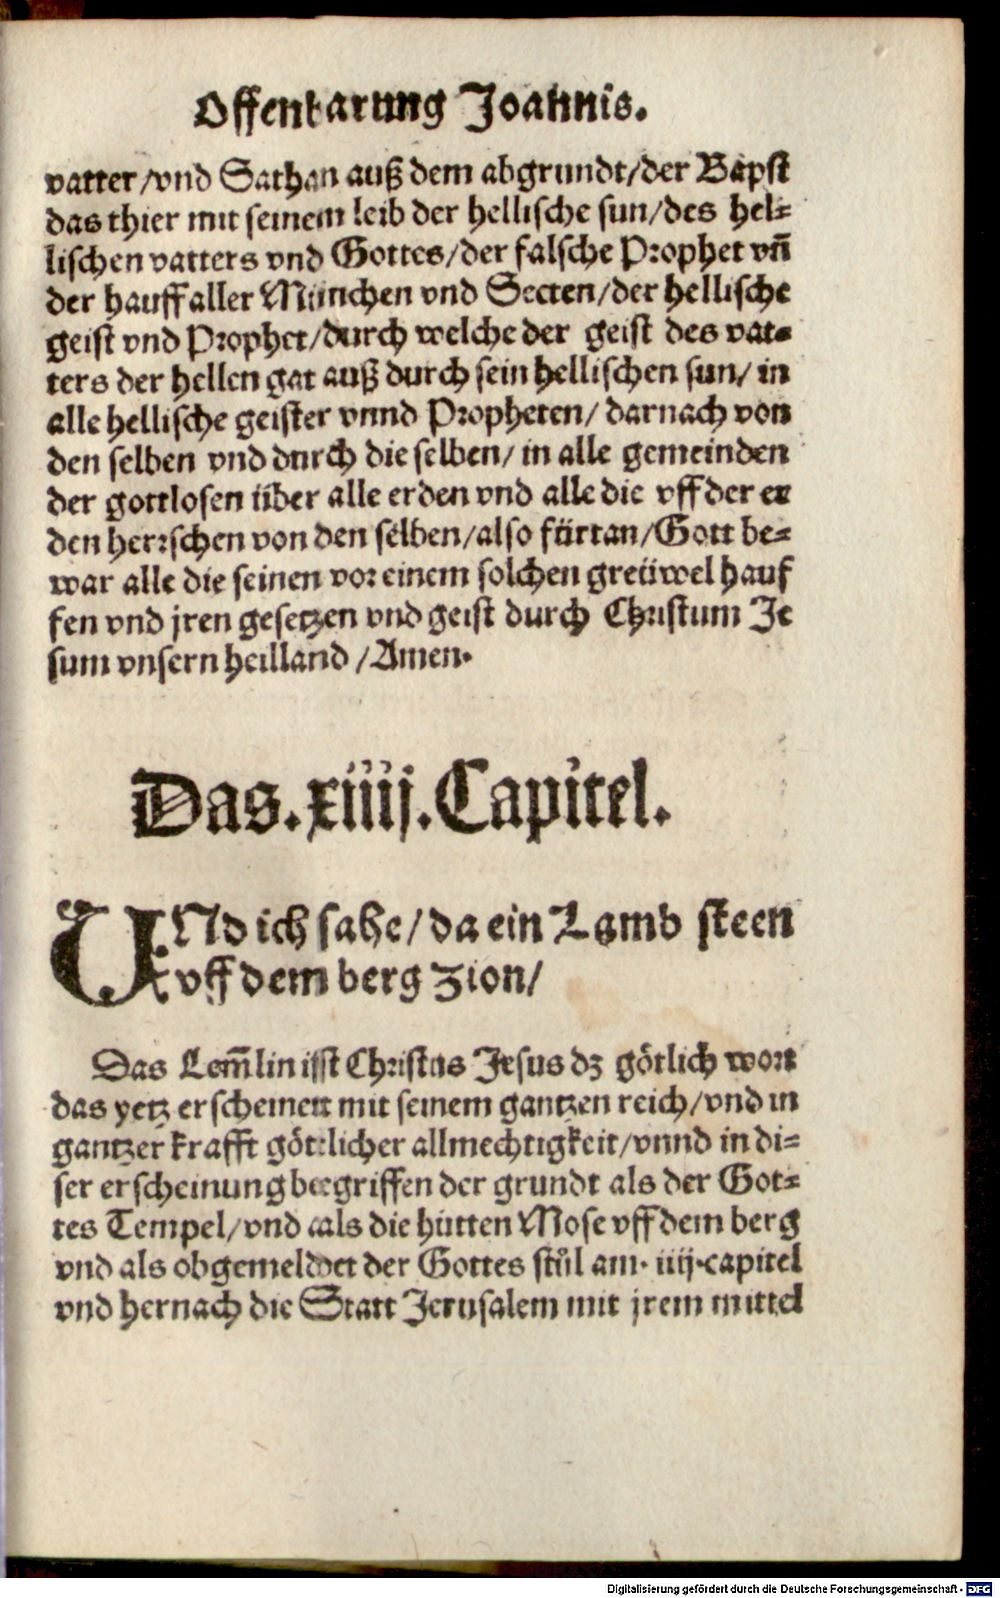 Offenbarung Joannis.
vatter/vnd Sathan auß dem abgrundt/der Bapst
das thier mit seinem leib der hellische sun/des hel⸗
lischen vatters vnd Gottes/der falsche Prophet vn̄
der hauff aller München vnd Secten/der hellische
geist vnd Prophet/durch welche der geist des vat⸗
ters der hellen gat auß durch sein hellischen sun/ in
alle hellische geister vnnd Propheten/ darnach von
den selben vnd durch die selben/ in alle gemeinden
der gottlosen über alle erden vnd alle die vff der er
den herrschen von den selben/also fürtan/Gott be⸗
war alle die seinen vor einem solchen greüwel hauf
fen vnd jren gesetzen vnd geist durch Christum Je
sum vnsern heilland /Amen.
Das.xiiij.Capitel.
UNd ich sahe/da ein Lamb steen
vff dem berg Zion/
Das Lem̄lin isst Christus Jesus dz götlich wort
das yetz erscheinett mit seinem gantzen reich/vnd in
gantzer krafft göttlicher allmechtigkeit/vnnd in di⸗
ser erscheinung beegriffen der grundt als der Got⸗
tes Tempel/vnd als die hütten Mose vff dem berg
vnd als obgemeldet der Gottes stůl am. iiij.capitel
vnd hernach die Statt Jerusalem mit jrem mittel
Digitalisierung gefördert durch die Deutsche Forschungsgemeinschaft - DFG